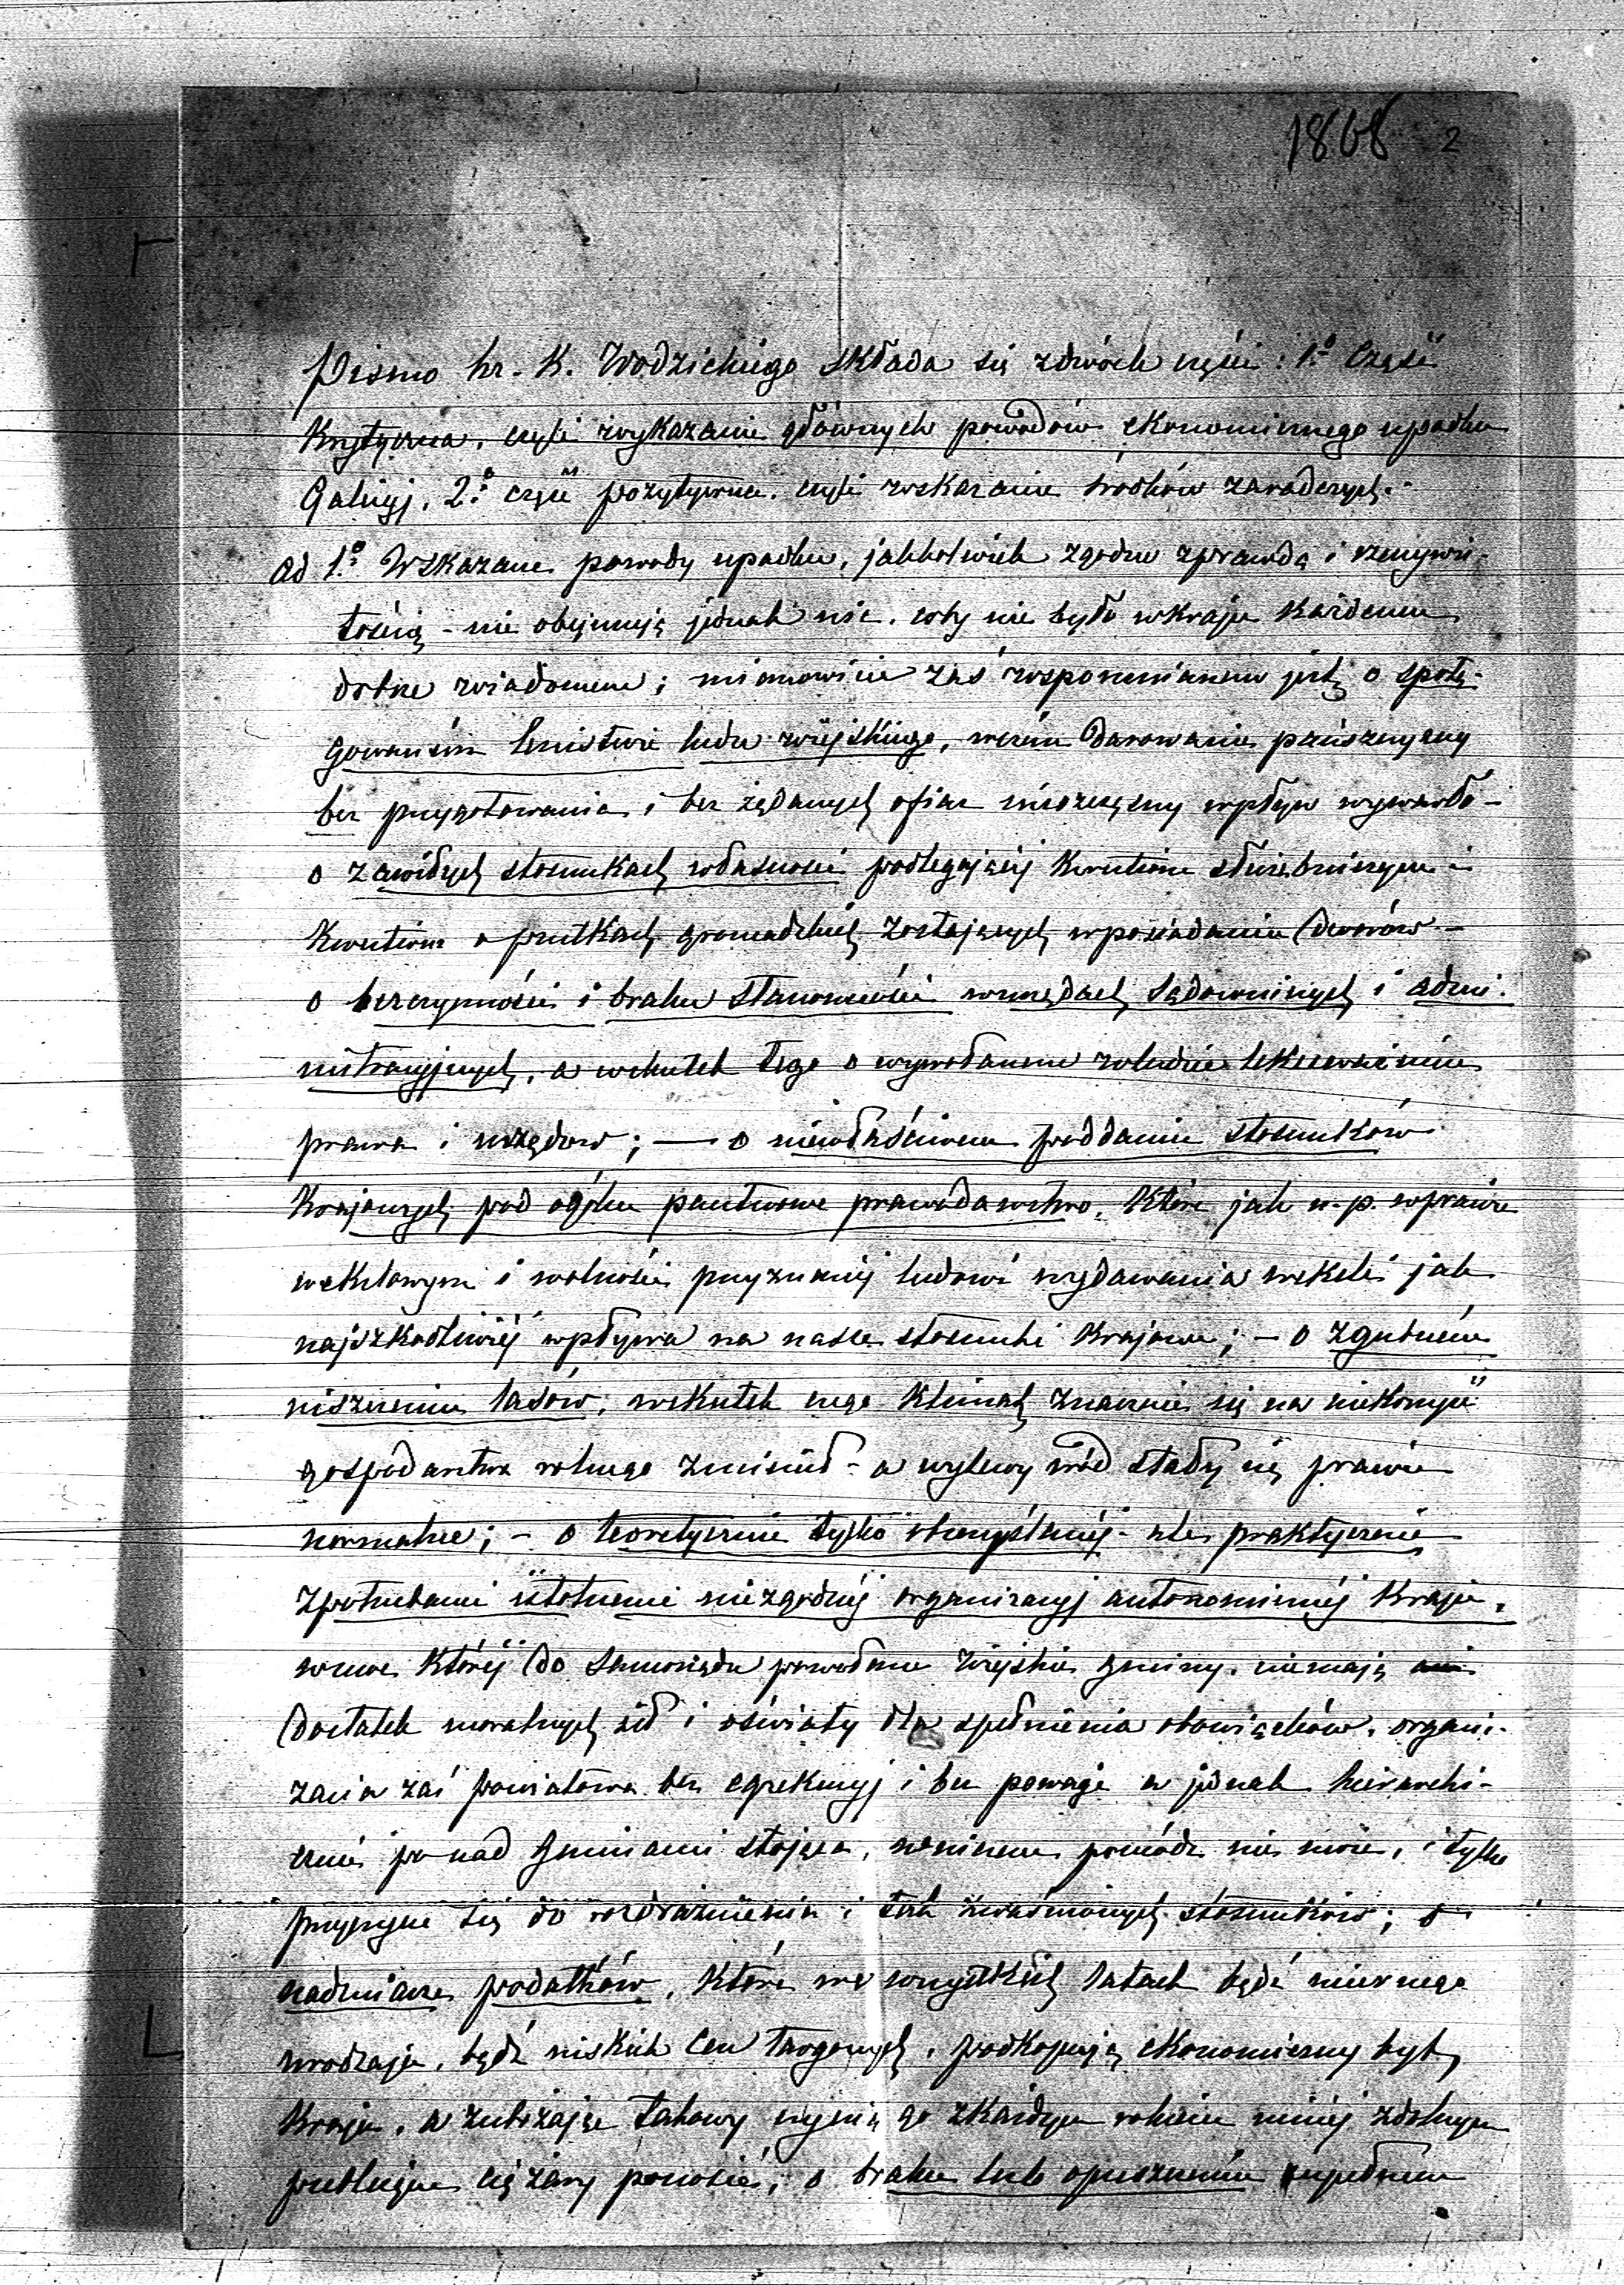 1868 2
Pismo hr. K. Wodzickiego składa się z dwóch części: 1.º Część
Krytyczna, czyli wykazanie głównych powodów ekonomicznego upadku
Galicyj, 2.º część pozytywna, czyli wskazanie środków zaradczych.
Ad 1.º Wskazane powody upadku, jakkolwiek zgodne z prawdą i rzeczywi-
stością - nie obejmują jednak nic, coby nie było w kraju każdemu
dobrze wiadomem; mianowicie zaś wspomnianem jest o spotę-
gowaném lenistwie ludu wiejskiego, w czém darowanie pańszczyzny
bez przygotowania i bez żądanych ofiar nieszczęsny wpływ wywarło -
o zawiłych stosunkach własności podlegającéj kwestiom służebniczym i
kwestiom o pustkach gromadzkich zostających w posiadaniu dworów -
o bezczynności i braku stanowczości w urzędach sądowniczych i admi-
nistracyjnych, a wskutek tego o wywołanem w ludzie lekceważeniu
prawa i urzędów; — o niewłaściwem poddaniu stosunków
Krajowych pod ogólne państwowe prawodawstwo, które jak n. p. w prawie
wekslowym i wolności przyznanéj ludowi wydawania weksli jak
najszkodliwiéj wpływa na nasze stosunki Krajowe; - o zgubném
niszczeniu lasów, wskutek czego klimat znacznie się na niekorzyść
gospodarstwa rolnego zmienił - a wylewy wód stały się prawie
normalne; - o teoretycznie tylko obmyślanéj - ale praktycznie
z potrzebami istotnemi niezgodnéj organizacyj autonomicznéj Kraju,
w któréj do samorządu powołane wiejskie gminy, nie mają
dostatek moralnych sił i oświaty dla spełnienia obowiązków, organi-
zacia zaś powiatowa bez egzekucyj i bez powagi a jednak hierarchi-
cznie ponad gminami stojąca, w niczem pomódz nie może, i tylko
przyczynia się do rozdrażnienia i tak zwaśnionych stosunków; o
nadmiarze podatków, które we wszystkich latach bądź miernego
urodzaju, bądź niskich cen targowych, podkopują ekonomiczny byt
Kraju, a zubożając takowy czynią go z każdym rokiem mniéj zdolnym
publiczne ciężary ponosić; o braku lub opuszczeniu zupełnem